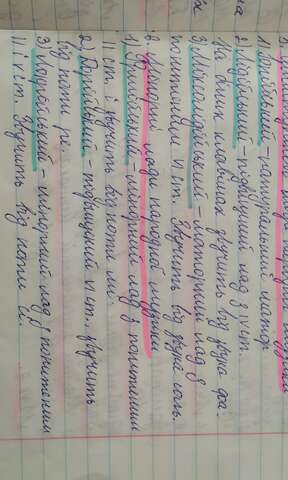 лади народної музики
1) Іонійський - натуральний мажор
2) Лідійський - підвищений лад з IV ст.
На білих клавішах звучить від звука фа.
3) Міксолідійський - мажорний лад з
пониженим VII ст. Звучить від звука соль.
Мінорні лади народної музики
1) Фрігійський - мінорний лад з пониженим
II ст. і звучить від ноти мі
2) Дорійський - підвищений VI ст. звучить
від ноти ре.
3) Локрійський - мінорний лад з пониженим
II і ст. Звучить від ноти сі.